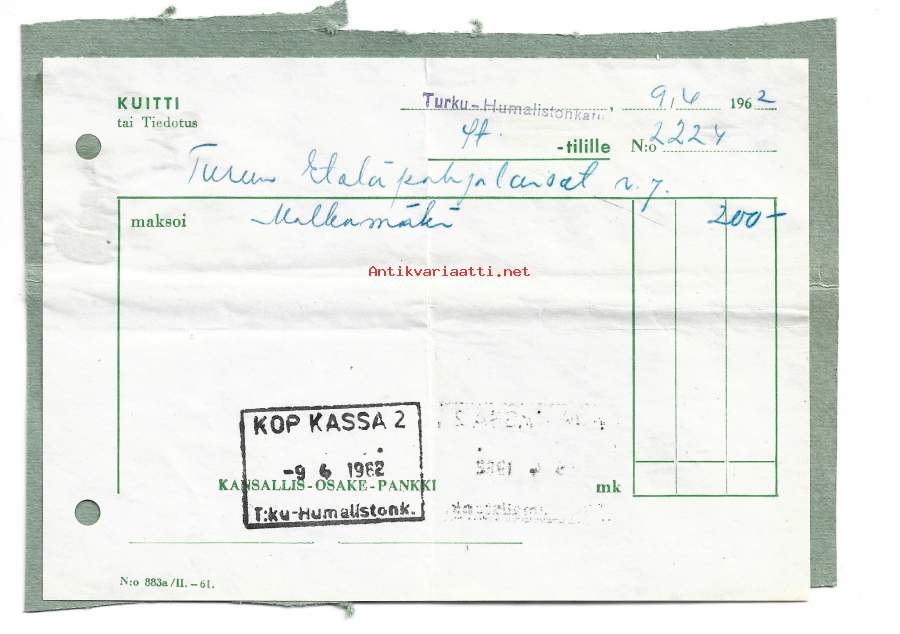 KUITTI
tai Tiedotus
Turku-Humalistonkatu, 9/6 1962
-tilille N:o 2224
Turun Eteläpohjalaiset r.y.
maksoi 200-
Antikvariaatti.net
KOP KASSA 2
-9 6 1962
KANSALLIS-OSAKE-PANKKI mk
T:ku-Humalistonk.
N:o 883a/II.-61.